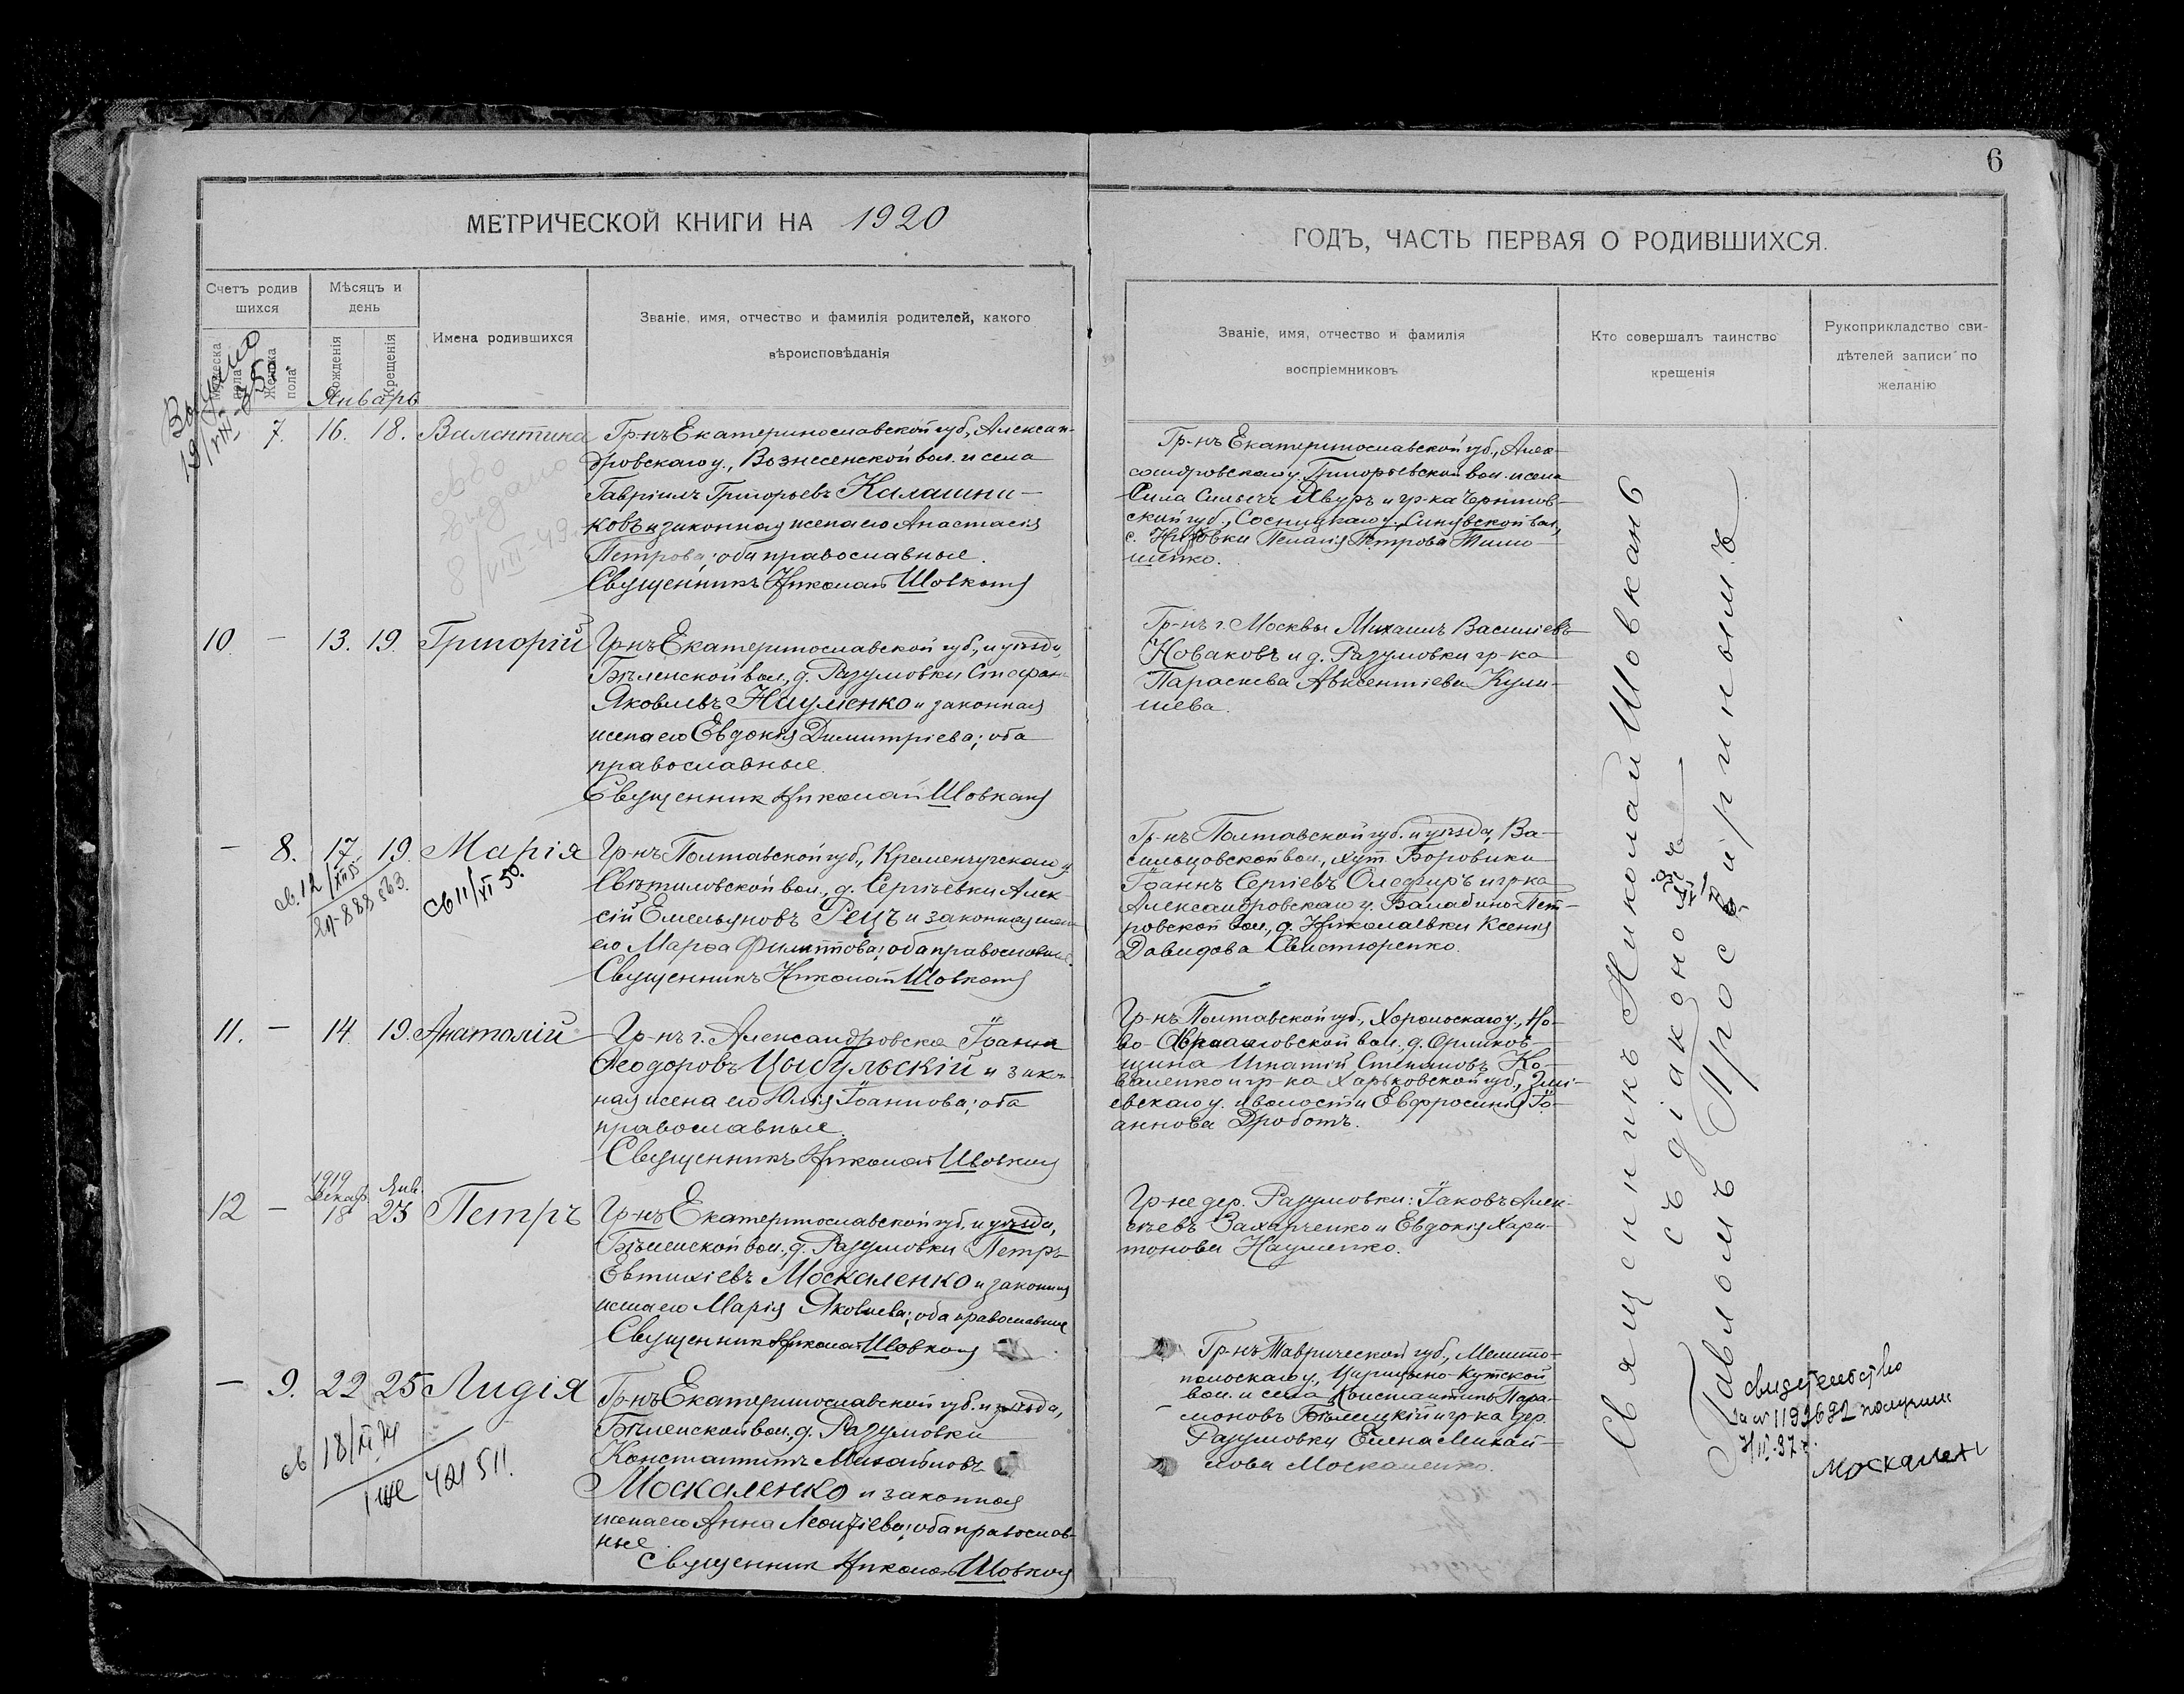 6
МЕТРИЧЕСКОЙ КНИГИ НА 1920
ГОДЪ, ЧАСТЬ ПЕРВАЯ О РОДИВШИХСЯ.
Счетъ родив
шихся
Мѣсяцъ и
день
Имена родившихся
Званіе, имя, отчество и фамилія родителей, какого
вѣроисповѣданія
Рожденія
Крещенія
Женска
пола
Январь
Званіе, имя, отчество и фамилія
воспріемниковъ
Кто совершалъ таинство
крещенія
Рукоприкладство сви-
дѣтелей записи по
желанію
7. 16. 18. Валентина
Гр-нъ Екатеринославской губ., Алексан-
дровскаго у., Вознесенской вол. и села
Гавріилъ Григорьевъ Калашни-
ковъ и законная жена его Анастасія
Петрова; оба православные.
Священникъ Николай Шовкань
8/VIII-49
Гр-нъ Екатеринославской губ., Алек-
сандровскаго у. Григорьевской вол. и села
Сила Силычъ и гр-ка Чернигов-
ской губ., Сосницкаго у., Синявской вол.,
с. Пелагія Петрова Тимо-
шенко.
10. — 13. 19. Григорій
Гр-нъ Екатеринославской губ., и уѣзда,
Бѣленской вол., д. Разумовки Стефанъ
Яковлевъ Науменко и законная
жена его Евдокія Димитріева; оба
православные.
Священник Николай Шовкань
Гр-нъ г. Москвы Михаилъ Василіевъ
Новаковъ и д. Разумовки гр-ка
Параскева Авксентіева Кули-
шева.
— 8. 17 19. Марія
св. 12/XII 55
888 563.
св 11/XI 50.
Гр-нъ Полтавской губ., Кременчугскаго у.
вол., д. Сергѣевки Алек-
сій Емельяновъ Рецъ и законная жена
его Марѳа Филиппова; оба православные.
Священникъ Николай Шовкань
Гр-нъ Полтавской губ. и уѣзда, Ва-
сильцовской вол., хут. Боровики
Іоаннъ Сергіевъ Олефиръ и гр-ка
Александровскаго у. Балабино-Пет-
ровской вол., д. Николаевки Ксенія
Давидова Свистюренко.
11. — 14 19. Анатолій
Гр-нъ г. Александровска Іоаннъ
Ѳеодоровъ Цыбульскій и закн-
ная жена его Юлія Іоаннова; оба
православные.
Священникъ Николай Шовкань
Гр-нъ Полтавской губ., Хорольскаго у., Но-
во-Аврамовской вол. д.
Игнатій Степановъ Ко-
валенко и гр-ка Харьковской губ., Змі-
евскаго у. и волости Евфросинія Іо-
аннова Дроботъ.
1919
Декаб. Янв.
12 — 18 23 Петръ
Гр-нъ Екатеринославской губ. и уѣзда,
Бѣленской вол., д. Разумовки Петръ
Евтихіевъ Москаленко и законная
жена его Марія Яковлева; оба православные
Священник Николай Шовкань
Гр-не дер. Разумовки: Іаковъ Алек-
сѣевъ Захарченко и Евдокія Хари-
тонова Науменко.
— 9. 22 25 Лидія
св 18/XI 74
421 511.
Гр-нъ Екатеринославской губ. и уѣзда,
Бѣленской вол., д. Разумовки
Константинъ Михайловъ
Москаленко и законная
жена его Анна Леонтіева; оба православ-
ные.
Священник Николай Шовкань
Гр-нъ Таврической губ., Мелито-
польскаго у., Царицыно-Кутской
вол. и села Константинъ Пара-
моновъ Бѣлецкій и гр-ка дер.
Разумовки Елена Михай-
лова Москаленко.
Священникъ Николай Шовкань
съ діакономъ
Павломъ
свидетельство
за № 1192692 получил
Москален